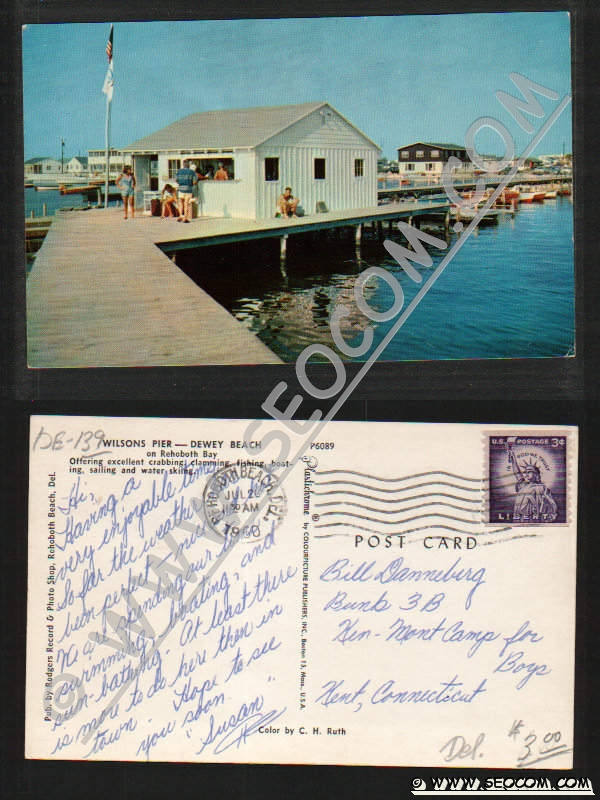 © WWW.SEOCOM.COM
DE-139
WILSONS PIER — DEWEY BEACH
on Rehoboth Bay
Offering excellent crabbing, clamming, fishing, boat-
ing, sailing and water skiing.
P6089
Pub. by Rodgers Record & Photo Shop, Rehoboth Beach, Del.
Hi,
Having a
very enjoyable time.
So far the weather
been perfect - nice
We are spending our
swimming, boating, and
sun-bathing. At least there
is more to do here then in
town. Hope to see
you soon.
"Susan"
Color by C. H. Ruth
Plastichrome ®
by COLOURPICTURE PUBLISHERS, INC., Boston 15, Mass., U.S.A.
REHOBOTH BEACH, DEL.
JUL 26
AM
1960
U.S. POSTAGE 3¢
IN GOD WE TRUST
LIBERTY
POST CARD
Bill Danneburg
Bunk 3B
Ken-Mont Camp for
Boys
Kent, Connecticut
Del. $3.00
© WWW.SEOCOM.COM